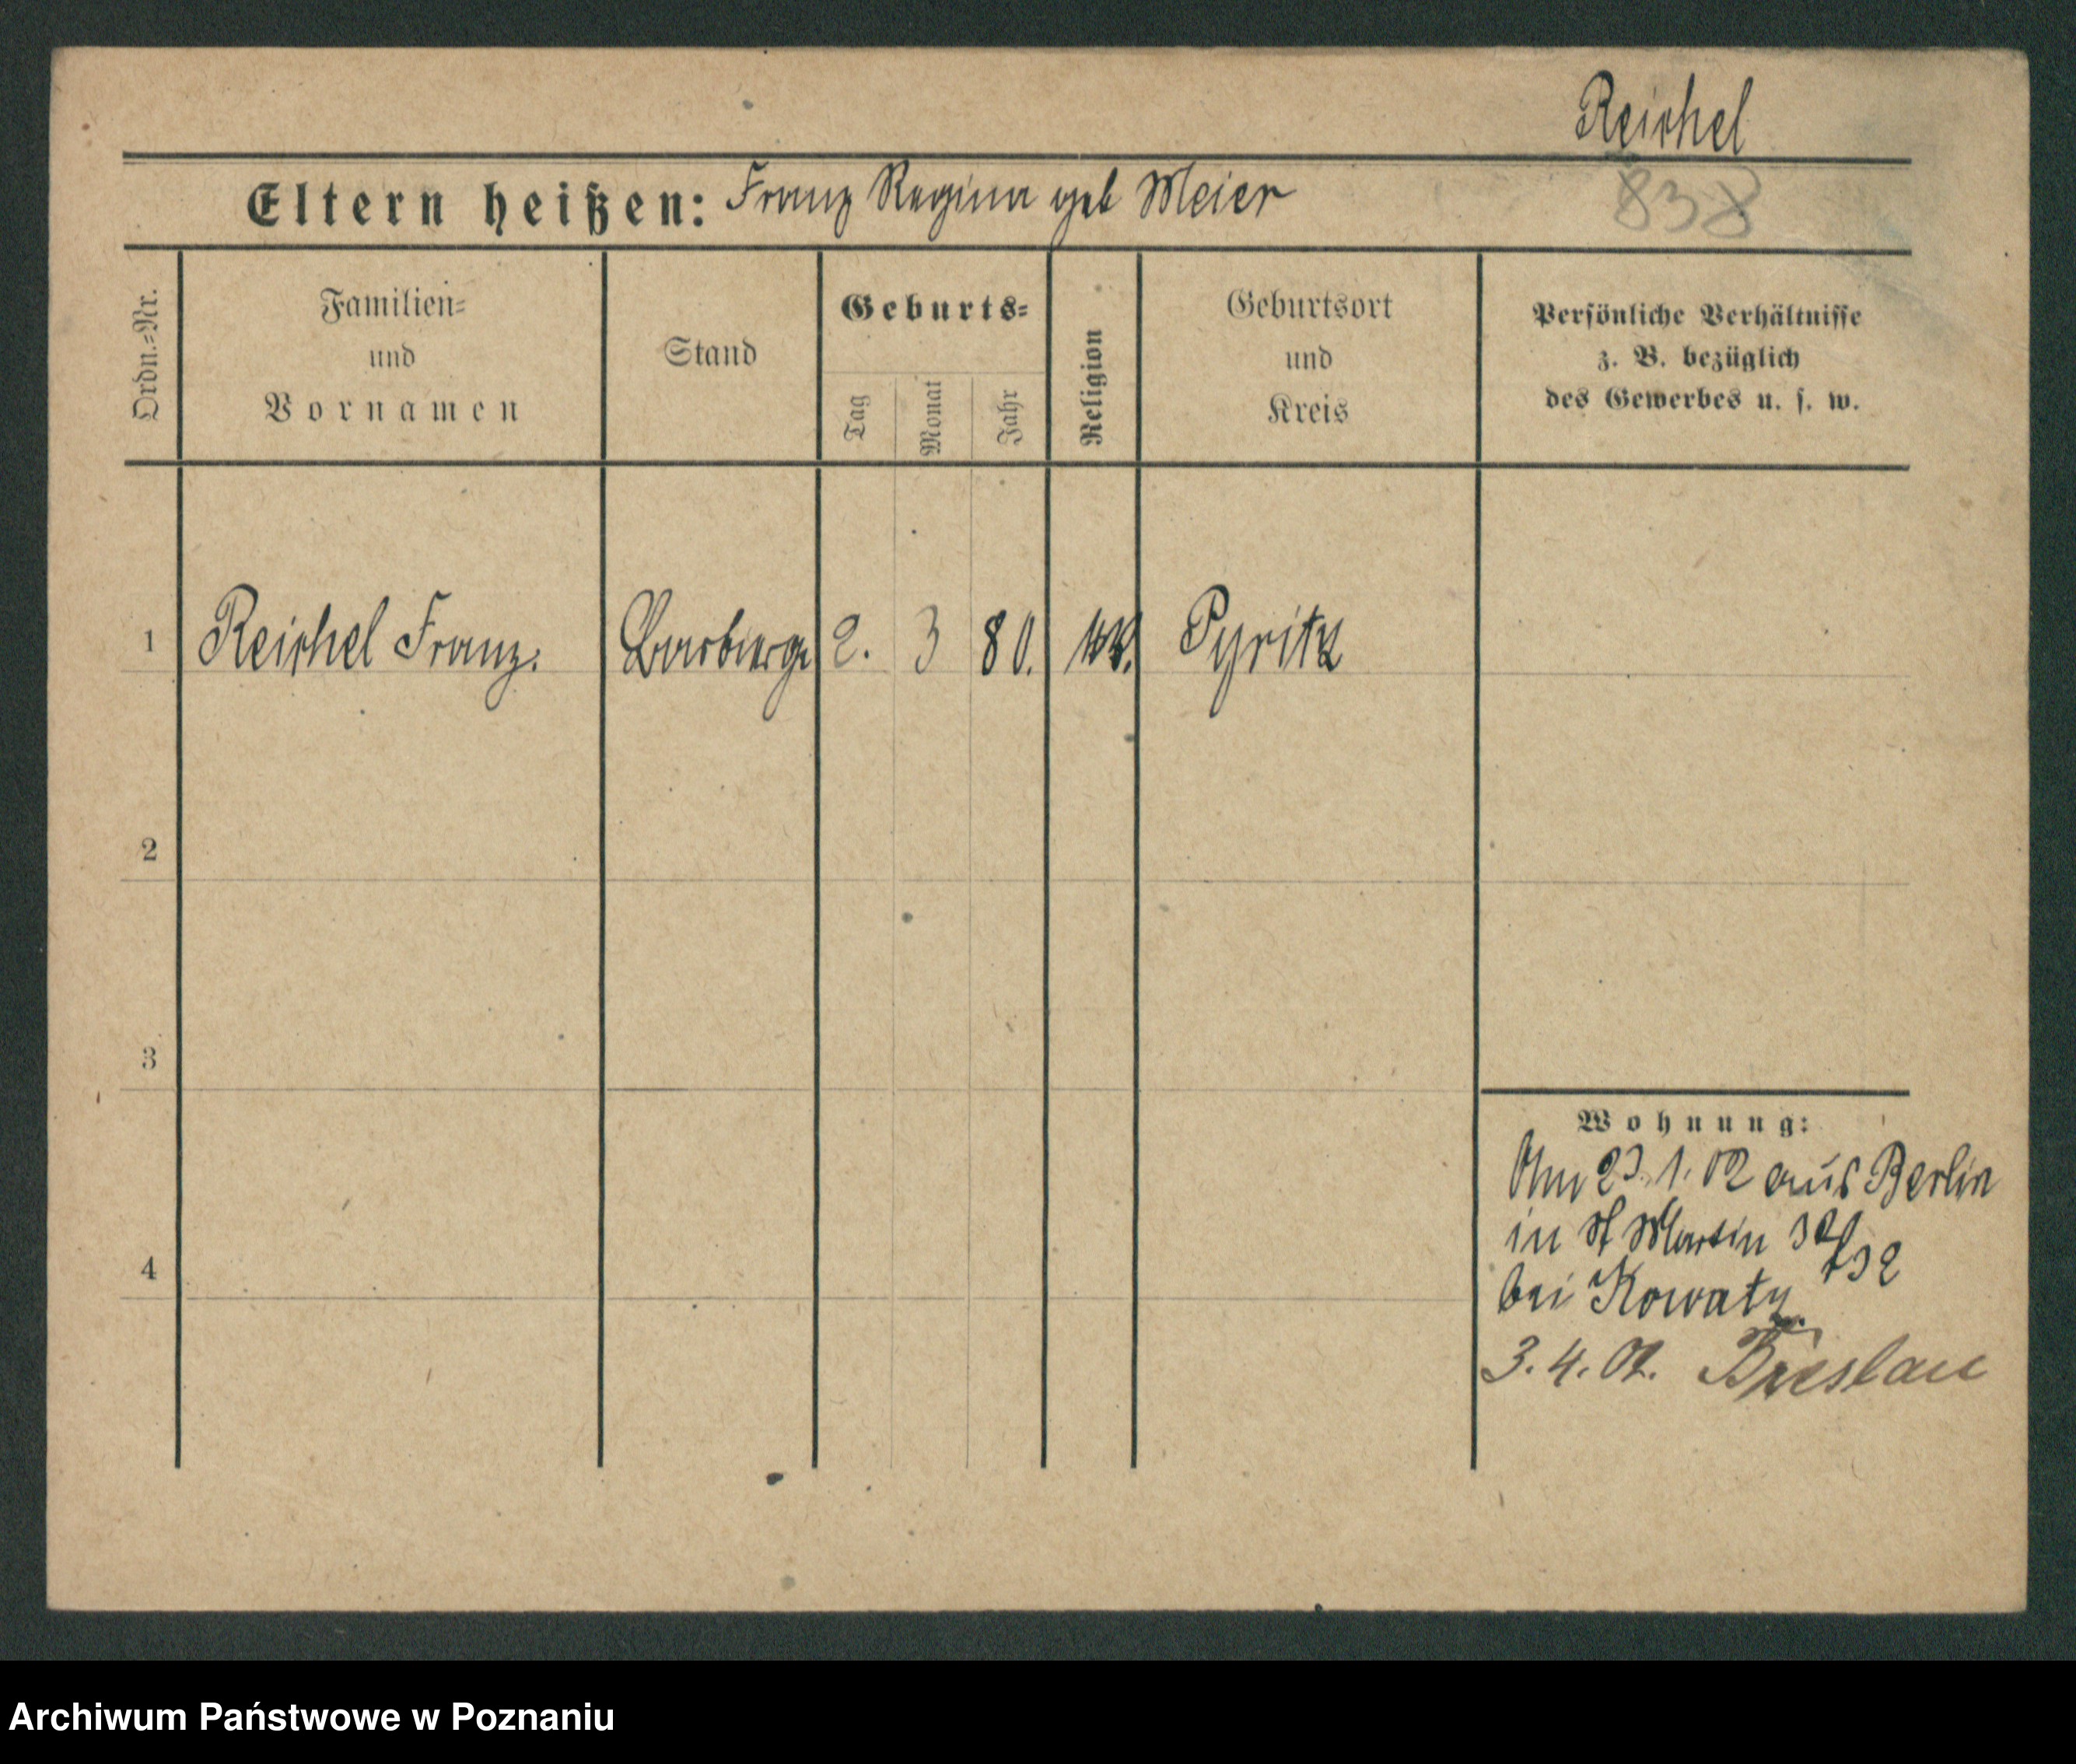 Reichel
838
Eltern heißen: Franz Regina geb Meier
Ordn.-Nr.
Familien-
und
Vornamen
Stand
Geburts-
Tag
Monat
Jahr
Religion
Geburtsort
und
Kreis
Persönliche Verhältnisse
z. B. bezüglich
des Gewerbes u. s. w.
1 Reichel Franz. 2. 3 80. kk. Pyritz
2
3
4
Wohnung:
Am 23.1.02 aus Berlin
in St Martin
bei
3.4.02. Breslau
Archiwum Państwowe w Poznaniu